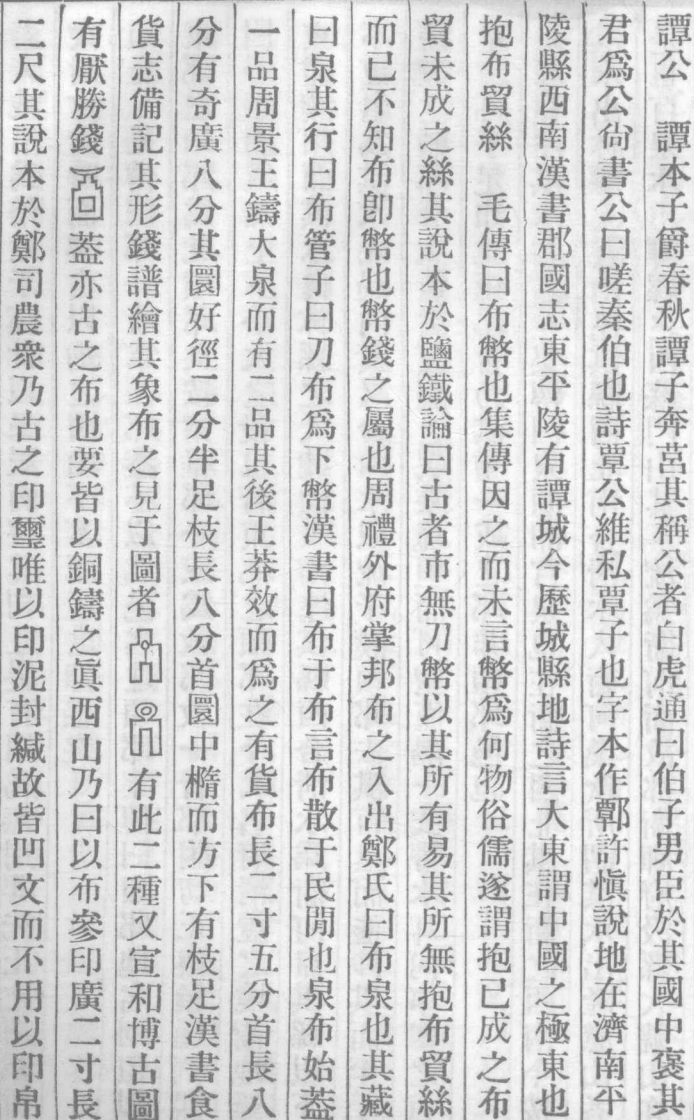 譚公　譚本子爵春秋譚子奔莒其稱公者白虎通曰伯子男臣於其國中褒其
君爲公尙書公曰嗟秦伯也詩覃公維私覃子也字本作鄿許愼說地在濟南平
陵縣西南漢書郡國志東平陵有譚城今歷城縣地詩言大東謂中國之極東也
抱布貿絲　毛傳曰布幣也集傳因之而未言幣爲何物俗儒遂謂抱已成之布
貿未成之絲其說本於鹽鐵論曰古者市無刀幣以其所有易其所無抱布貿絲
而已不知布卽幣也幣錢之屬也周禮外府掌邦布之入出鄭氏曰布泉也其藏
曰泉其行曰布管子曰刀布爲下幣漢書曰布于布言布散于民閒也泉布始蓋
一品周景王鑄大泉而有二品其後王莽效而爲之有貨布長二寸五分首長八
分有奇廣八分其圜好徑二分半足枝長八分首圜中橢而方下有枝足漢書食
貨志備記其形錢譜繪其象布之見于圖者有此二種又宣和博古圖
有厭勝錢蓋亦古之布也要皆以銅鑄之眞西山乃曰以布參印廣二寸長
二尺其說本於鄭司農衆乃古之印璽唯以印泥封緘故皆凹文而不用以印帛